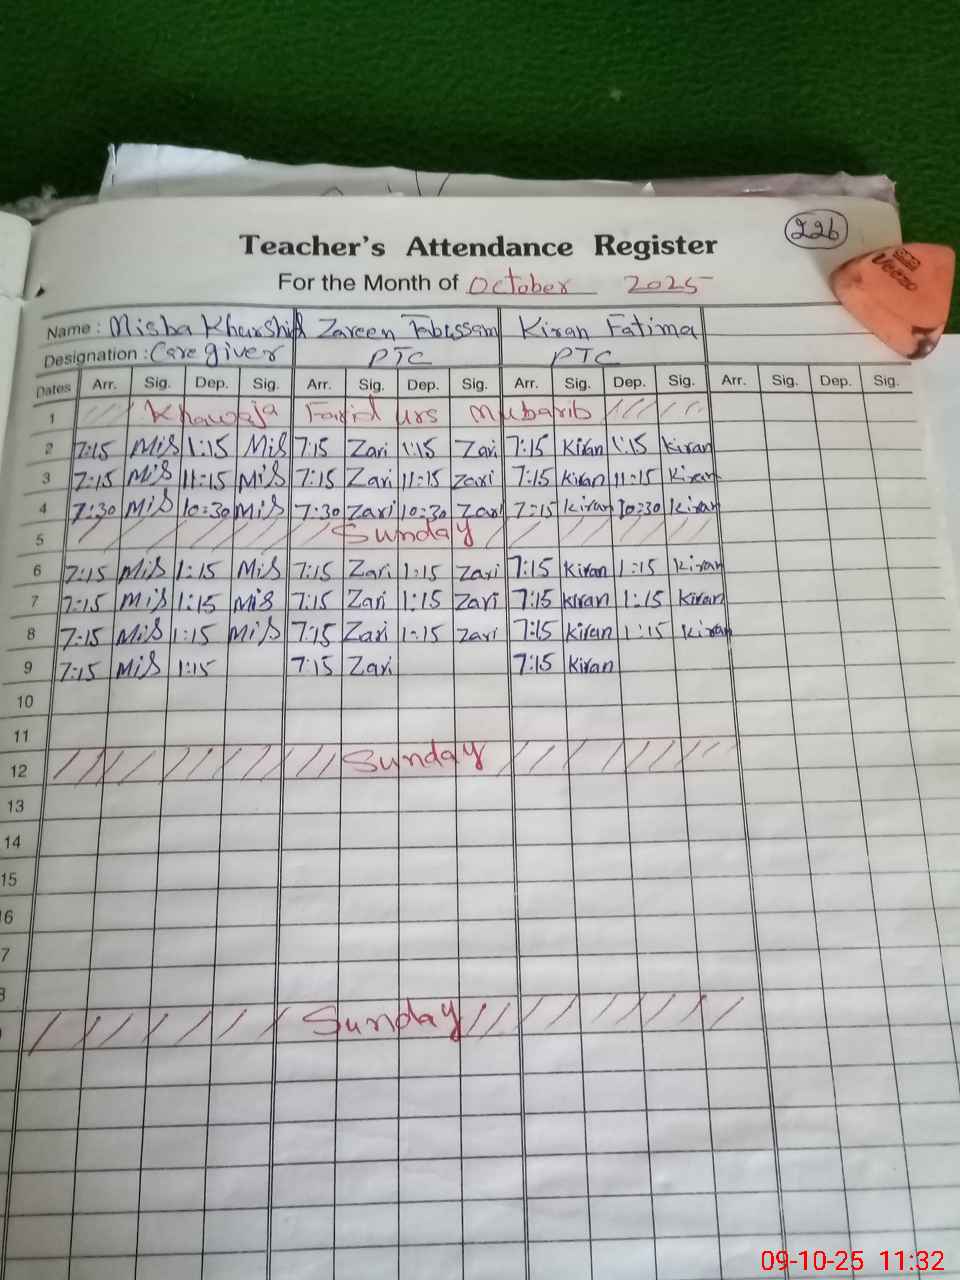 226
Teacher's Attendance Register
For the Month of October 2025
Veezo
Name : Misba Khurshid Zareen Tabassam Kiran Fatima
Designation : Care giver PTC PTC
Dates Arr. Sig. Dep. Sig. Arr. Sig. Dep. Sig. Arr. Sig. Dep. Sig. Arr. Sig. Dep. Sig.
1 Khawaja Farid urs Mubarib
2 7:15 Mis 1:15 Mis 7:15 Zari 1:15 Zari 7:15 Kiran 1:15 Kiran
3 7:15 Mis 11:15 Mis 7:15 Zari 11:15 Zari 7:15 Kiran 11:15 Kiran
4 7:30 Mis 10:30 Mis 7:30 Zari 10:30 Zari 7:15 Kiran 10:30 Kiran
5 Sunday
6 7:15 Mis 1:15 Mis 7:15 Zari 1:15 Zari 7:15 Kiran 1:15 Kiran
7 7:15 Mis 1:15 Mis 7:15 Zari 1:15 Zari 7:15 Kiran 1:15 Kiran
8 7:15 Mis 1:15 Mis 7:15 Zari 1:15 Zari 7:15 Kiran 1:15 Kiran
9 7:15 Mis 1:15 7:15 Zari 7:15 Kiran
10
11
12 Sunday
13
14
15
6
7
8
Sunday
09-10-25 11:32